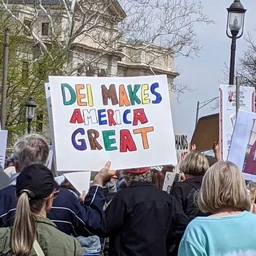 DEI MAKES
AMERICA
GREAT